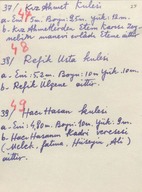 37/ Kız Ahmet Kulesi
48
a- Eni: 5m. Boyu: 25m. Yük: 12m.
b- Kız Ahmetlerden
manevi evladı Etene aittir.
48
38/ Refik Usta kulesi
a- Eni: 5,2m. Boyu: 10m. Yük: 10m.
b- Refik Ulgene aittir.
49
38/ Hacı Hasan kulesi
a- Eni: 4,80m. Boyu: 10m. Yük: 9m.
b- Hacı Hasanın Kadri veresesi
(Melek, fatma, Hüseyin, Ali)
aittir.